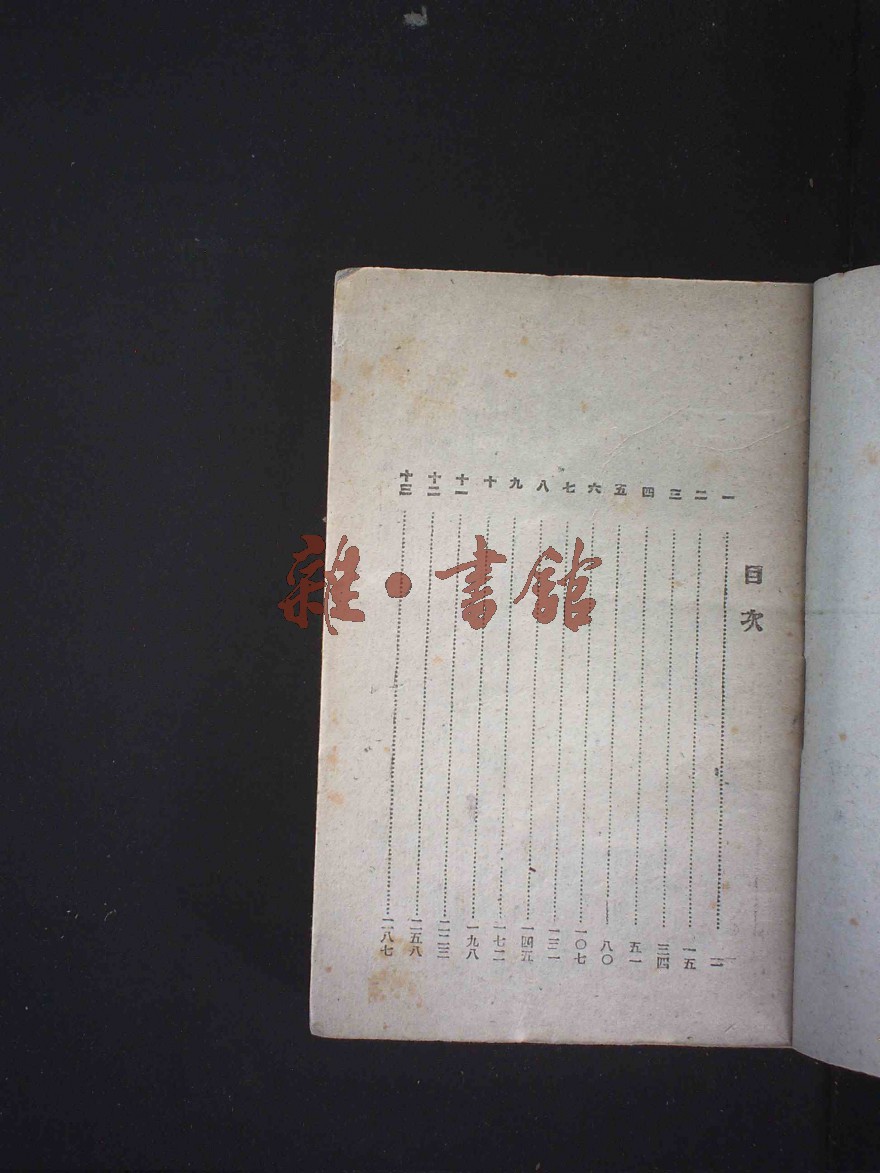 目次
一
二 一五
三 三四
四 五一
五 八〇
六 一〇七
七 一三一
八 一四五
九 一七二
十 一九八
十一 二二三
十二 二五八
十三 二八七
雜·書館